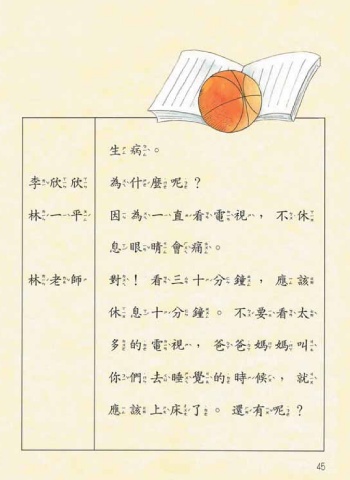 生病。
李欣欣 為什麼呢？
林一平 因為一直看電視，不休
息眼睛會痛。
林老師 對！看三十分鐘，應該
休息十分鐘。不要看太
多的電視，爸爸媽媽叫
你們去睡覺的時候，就
應該上床了。還有呢？
45